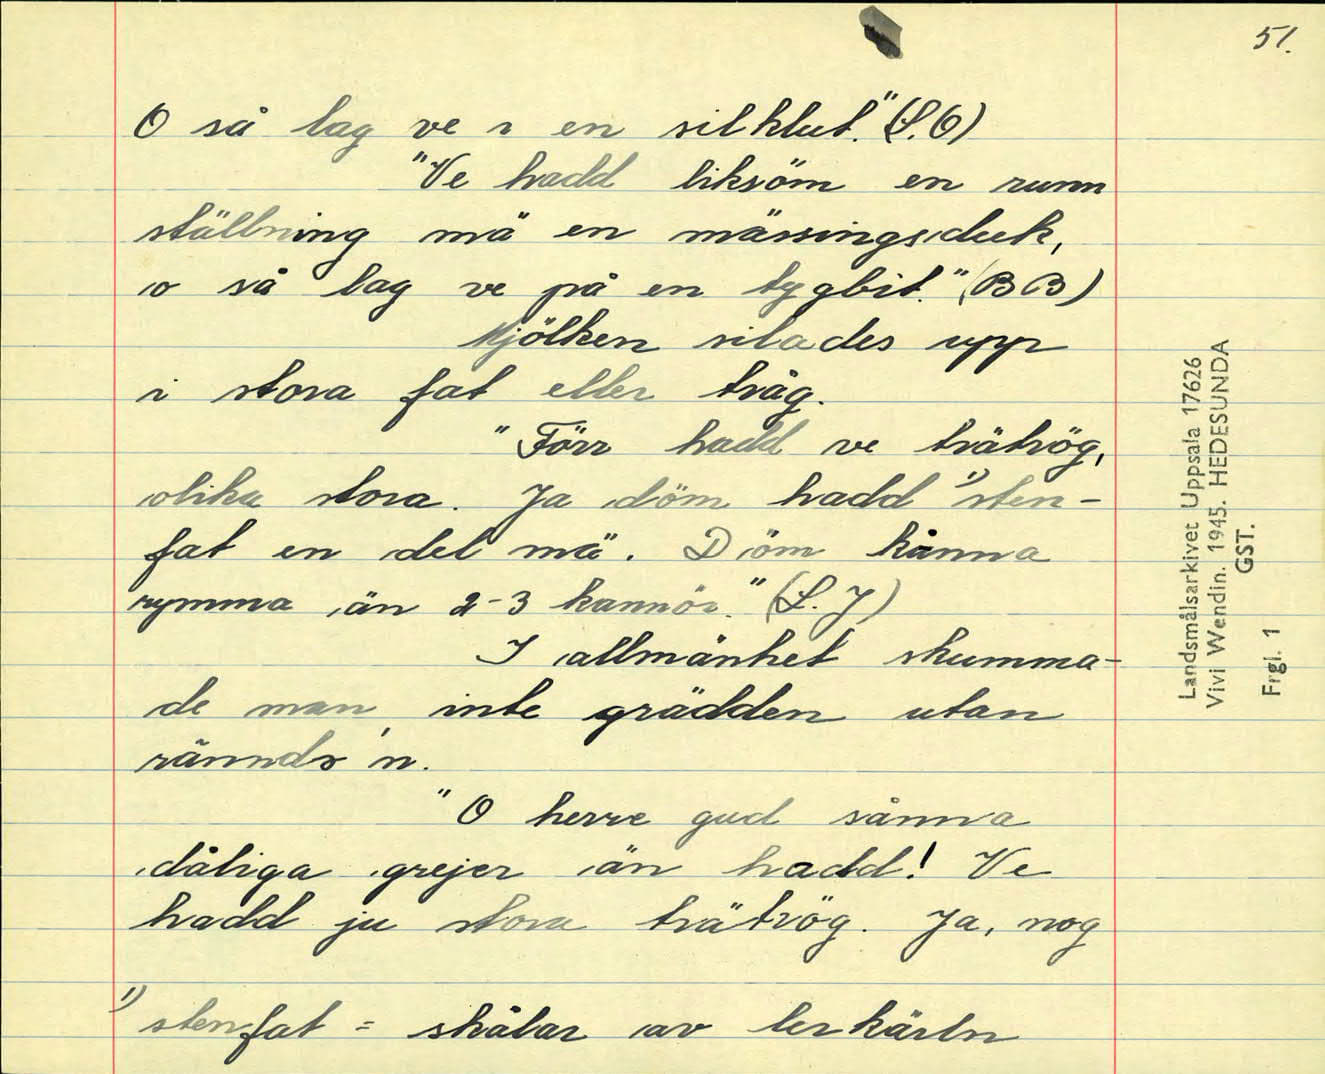 51.
O så lag ve i en silklut." (S.Ö)
"Ve hadd liksöm en runn
ställning mä en mässingsduk,
o så lag ve på en tygbit." (B B)
Mjölken silades upp
i stora fat eller tråg.
"Förr hadd ve trätrög,
olika stora. Ja döm hadd 1) sten-
fat en del mä. Döm kånna
rymma än 2-3 kannör." (L. J)
I allmänhet skumma-
de man inte grädden utan
rännds'n.
"O herre gud sånna
dåliga grejer än hadd! Ve
hadd ju stora trätrög. Ja, nog
1) stenfat = skålar av lerkärln
Landsmålsarkivet Uppsala 17626
Vivi Wendin. 1945. HEDESUNDA
GST.
Frgl. 1